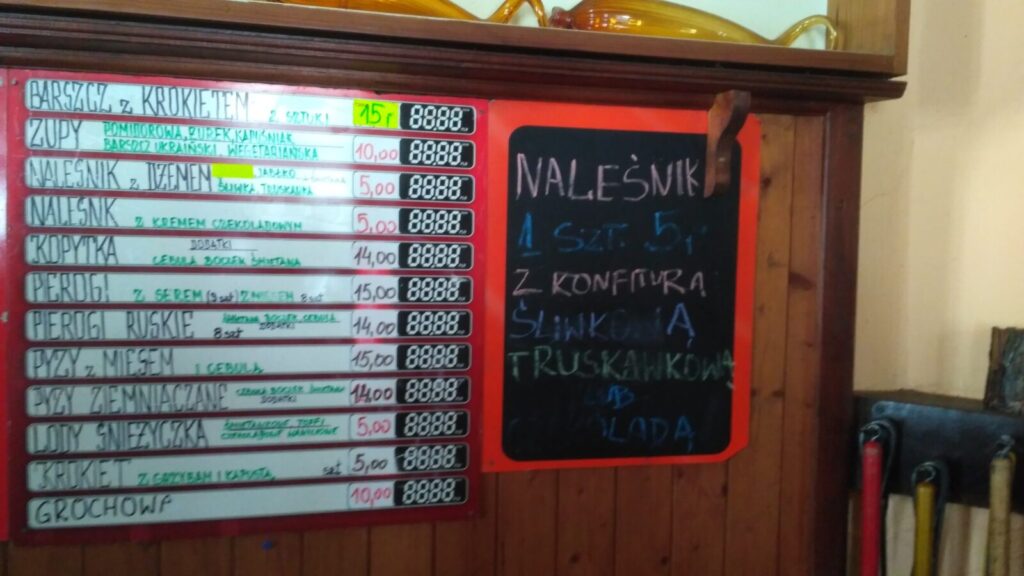 BARSZCZ z KROKIETEM 2 SZTUKI 15,-
ZUPY POMIDOROWA, ŻUREK, KAPUŚNIAK
BARSZCZ UKRAIŃSKI, WEGETARIAŃSKA 10,00
NALEŚNIK z DŻEMEM JABŁKO
ŚLIWKA, TRUSKAWKA 5,00
NALEŚNK Z KREMEM CZEKOLADOWYM 5,00
KOPYTKA DODATKI
CEBULA BOCZEK ŚMIETANA 14,00
PIEROGI Z SEREM (9 szt) Z MIĘSEM 8 szt 15,00
PIEROGI RUSKIE ŚMIETANA, BOCZEK, CEBULA
8 szt DODATKI 14,00
PYZY z MIĘSEM I CEBULĄ 15,00
PYZY ZIEMNIACZANE CEBULA BOCZEK ŚMIETANA
DODATKI 14,00
LODY ŚNIEŻYCZKA ŚMIETANKOWE, TOFFI,
CZEKOLADOWE WANILIOWE 5,00
KROKIET Z GRZYBAMI I KAPUSTĄ szt 5,00
GROCHOWA 10,00
NALEŚNIK
1 SZT. 5,-
Z KONFITURĄ
TRUSKAWKOWĄ
LUB